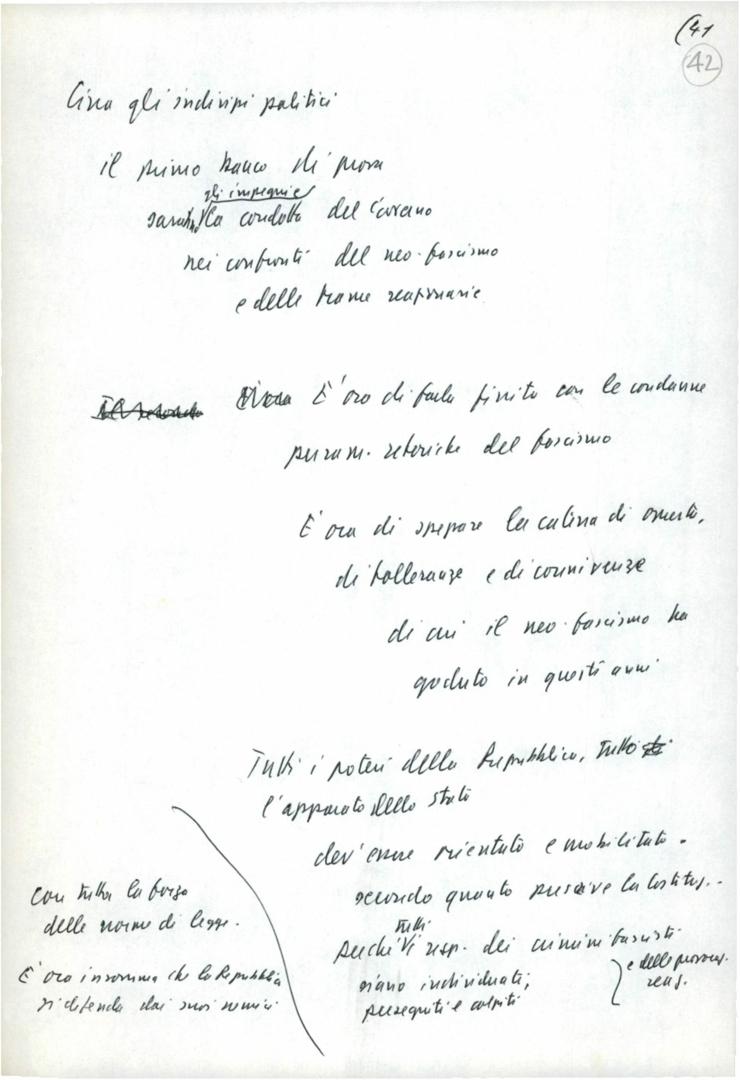 (41
42
Circa gli indirizzi politici
il primo banco di prova
gli impegni e
saranno la condotta del Governo
nei confronti del neo-fascismo
e delle trame reazionarie
Il secondo È ora È ora di farla finita con le condanne
puram. retoriche del fascismo
È ora di spezzare la catena di omertà,
di tolleranze e di connivenze
di cui il neo-fascismo ha
goduto in questi anni
Tutti i poteri della Repubblica, tutto
l'apparato dello Stato
dev'essere orientato e mobilitato -
secondo quanto prescrive la Costituz. -
tutti
perché i resp. dei crimini fascisti
e delle provocaz.
reaz.
siano individuati,
perseguiti e colpiti
con tutta la forza
delle norme di legge.
È ora insomma che la Repubblica
si difenda dai suoi nemici